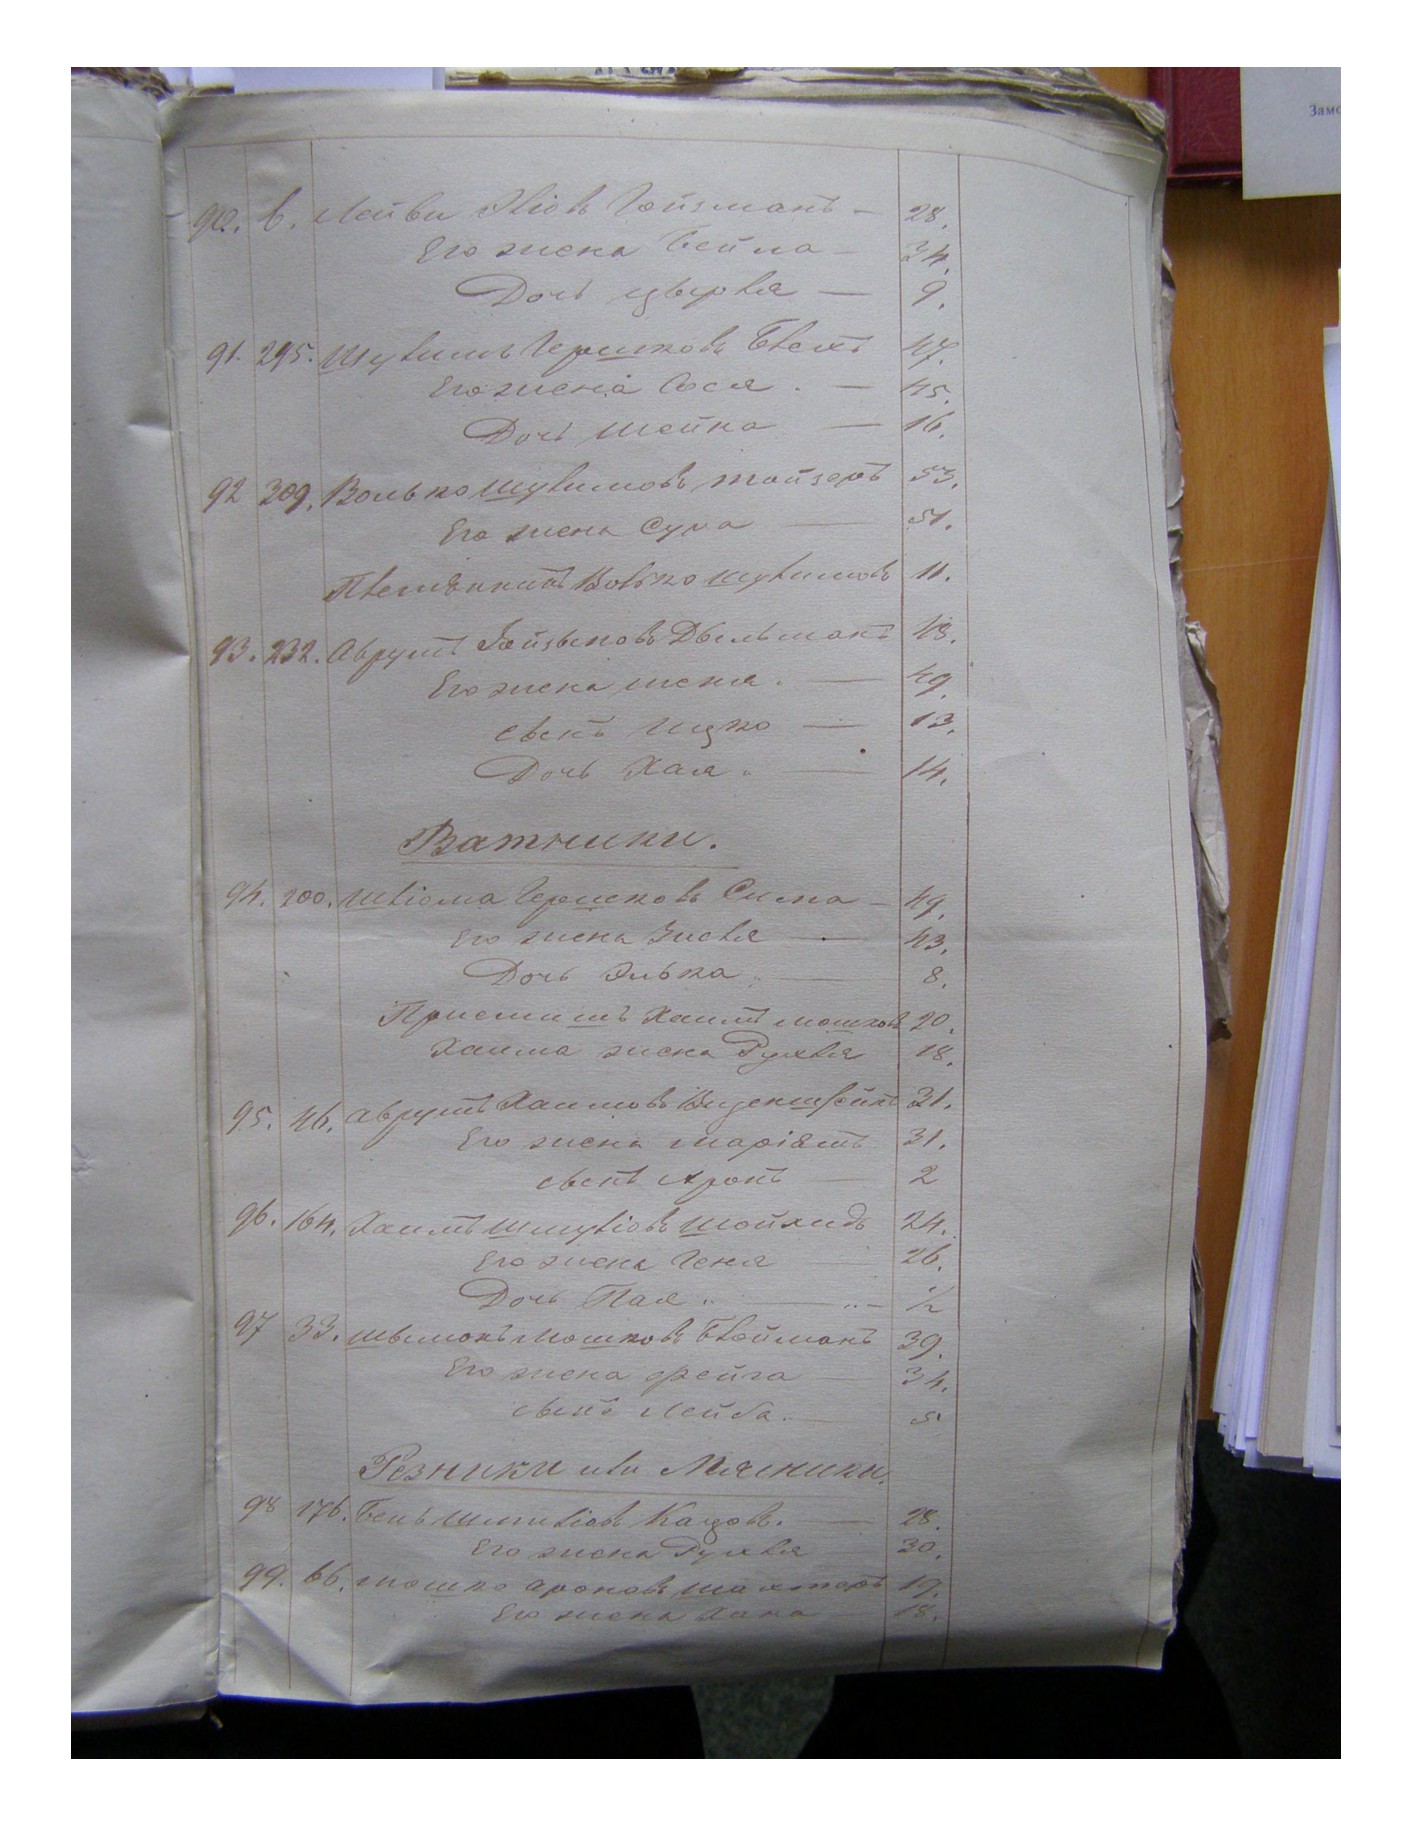 Замо
90. 6. Лейви Хіовъ Гойзманъ — 28.
Его жена Бейла — 34.
Дочь Цырля — 9.
91. 295. Шулимъ Гершковъ Блехъ 47.
Его жена Гося. — 45.
Дочь Шейна — 16.
92 309. Волько Шулимовъ 53.
Его жена Сура — 51.
Племянникъ Волько Шулимовъ 11.
93. 232. Аврумъ Айзыковъ 48.
Его жена Шеня. — 49.
сынъ Ицко — 13.
Дочь Хая. — 14.
Ватники.
94. 200. Шліома Гершковъ Сима — 49.
Его жена Зисля — 43.
Дочь Элька. — 8.
Приемышъ Хаимъ Мошковъ 20.
Хаима жена Рухля 18.
95. 46. Аврумъ Хаимовъ 31.
Его жена Маріямъ 31.
сынъ Аронъ — 2
96. 164. Хаимъ Шмуліовъ Шойхидъ 24.
Его жена Геня — 26.
Дочь Пая. — ½
97 33. Шымонъ Мошковъ Клейманъ 39.
Его жена Фейга — 34.
сынъ Лейба. — 5.
Резники или Мясники.
98 176. Бень Шмиліовъ Кацовъ. — 28.
Его жена Рухля 30.
99. 66. Мошко Ароновъ Шахтеръ 19.
Его жена Хана — 18.